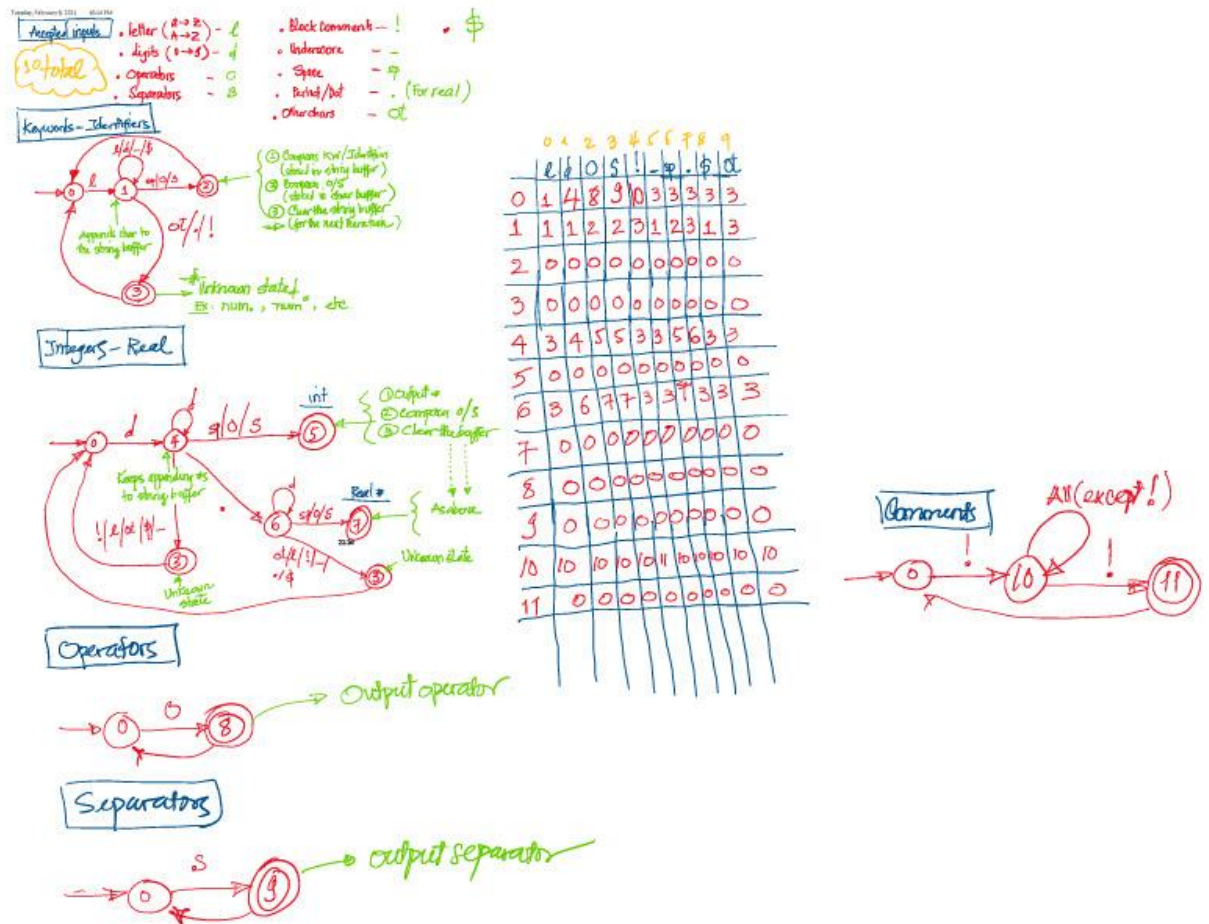 Tuesday, February 9, 2021
Accepted inputs
10 total
. letter (a→z A→Z) - l
. digits (0→9) - d
. Operators - O
. Separators - S
. Block Comments - !
. Underscore - _
. Space - sp
. Period/Dot - . (For real)
. Other chars - ot
. $
Keywords - Identifiers
l/d/_/$
0
l
1
sp/O/S
2
① Compares KW/Identifier
(stored in string buffer)
② Compares O/S
(stored in char buffer)
③ Clear the string buffer
(for the next iteration)
Appends char to
the string buffer
ot/./!
3
Unknown state
Ex: num., num", etc
Integers - Real
0
d
4
d
sp/O/S
int
5
① Output #
② Compares O/S
③ Clear the buffer
Keeps appending #s
to string buffer
.
6
d
sp/O/S
Real #
7
As above
!/l/ot/$/_
3
Unknown
state
ot/l/!/_/
./$
3
Unknown state
Operators
0
O
8
Output operator
Separators
0
S
9
output separator
0 1 2 3 4 5 6 7 8 9
l d O S ! _ sp . $ ot
0 1 4 8 9 10 3 3 3 3 3
1 1 1 2 2 3 1 2 3 1 3
2 0 0 0 0 0 0 0 0 0 0
3 0 0 0 0 0 0 0 0 0 0
4 3 4 5 5 3 3 5 6 3 3
5 0 0 0 0 0 0 0 0 0 0
6 3 6 7 7 3 3 7 3 3 3
7 0 0 0 0 0 0 0 0 0 0
8 0 0 0 0 0 0 0 0 0 0
9 0 0 0 0 0 0 0 0 0 0
10 10 10 10 10 11 10 10 10 10 10
11 0 0 0 0 0 0 0 0 0 0
Comments
All (except !)
0
!
10
!
11